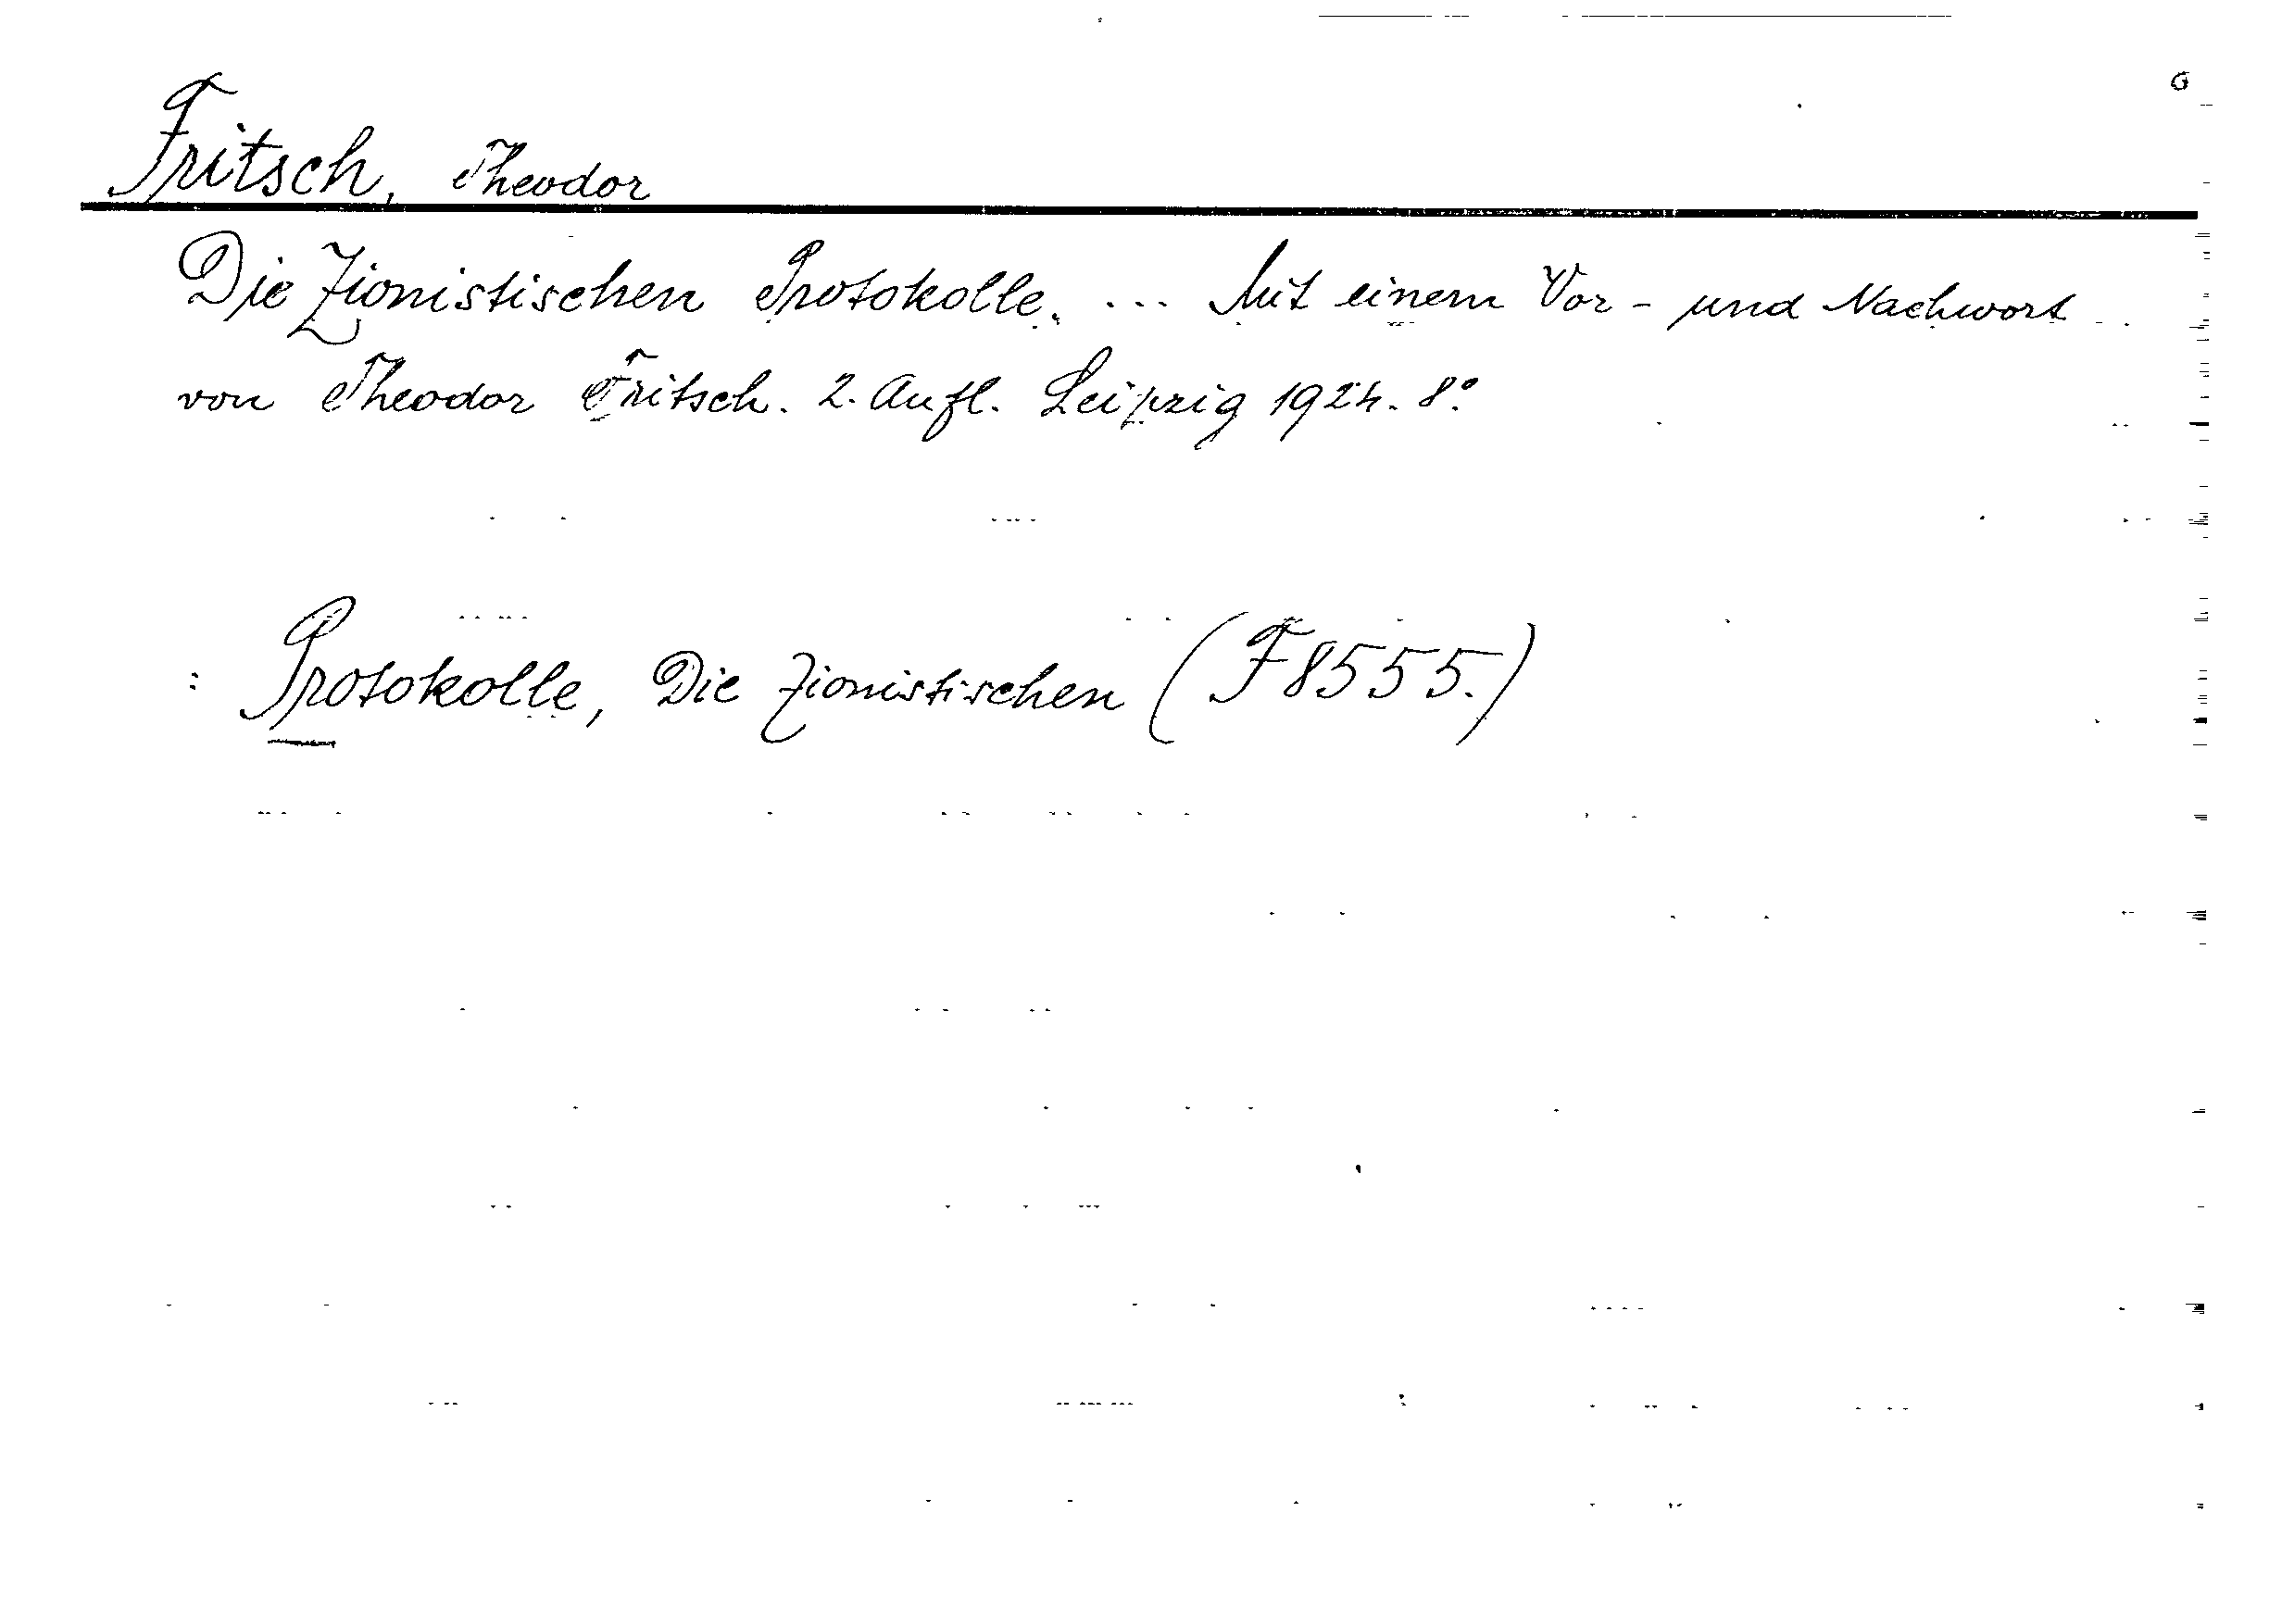 6
Fritsch, Theodor
Die Zionistischen Protokolle. ... Mit einem Vor- und Nachwort
von Theodor Fritsch. 2. Aufl. Leipzig 1924. 8°.
: Protokolle, Die Zionistischen (F8555.)